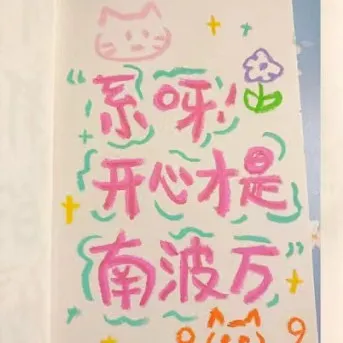 “系呀!
开心才是
南波万”